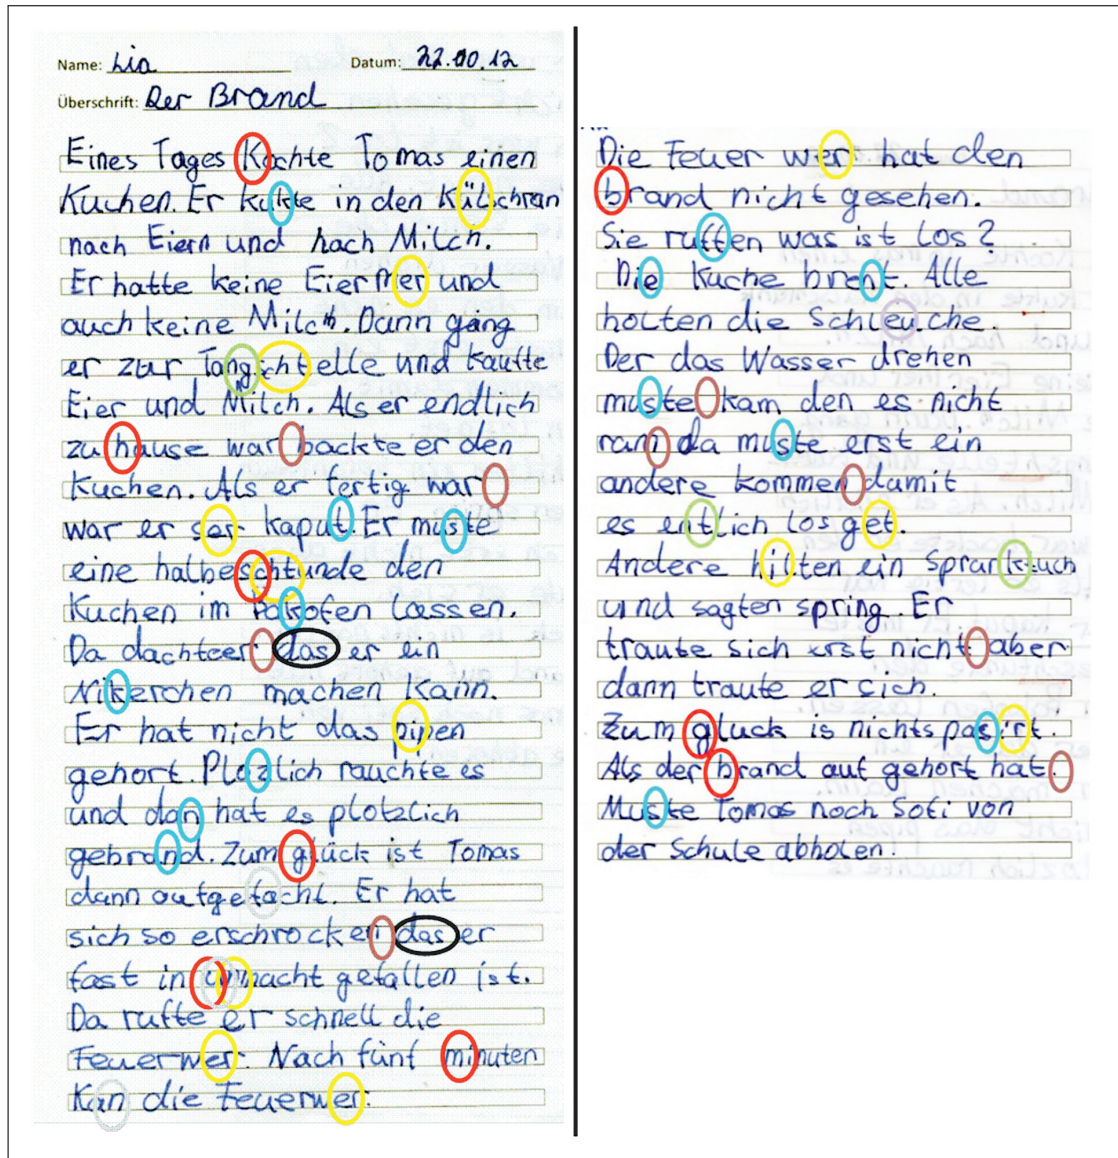 Name: Lia Datum: 22.00.12
Überschrift: Der Brand
Eines Tages Kochte Tomas einen
Kuchen. Er kukte in den Külschran
nach Eiern und nach Milch.
Er hatte keine Eier mer und
auch keine Milch. Dann gang
er zur Tangschtelle und kaufte
Eier und Milch. Als er endlich
zu hause war backte er den
Kuchen. Als er fertig war
war er ser kaput. Er muste
eine halbe schtunde den
Kuchen im Pakofen lassen.
Da dachte er das er ein
Nikerchen machen kann.
Er hat nicht das pipen
gehort. Plozlich rauchte es
und dan hat es plotzlich
gebrand. Zum glück ist Tomas
dann aufgefacht. Er hat
sich so erschrocken das er
fast in macht gefallen ist.
Da rufte er schnell die
Feuerwer. Nach fünf minuten
Kan die Feuerwer.
Die Feuer wer hat den
brand nicht gesehen.
Sie ruffen was ist los?
Die Kuche brent. Alle
holten die Schleuche.
Der das Wasser drehen
muste kam den es nicht
ran da muste erst ein
andere kommen damit
es entlich los get.
Andere hilten ein Sprunktuch
und sagten spring. Er
traute sich erst nicht aber
dann traute er sich.
Zum gluck is nichts pasirt.
Als der brand auf gehort hat
Muste Tomas noch Sofi von
der Schule abholen.